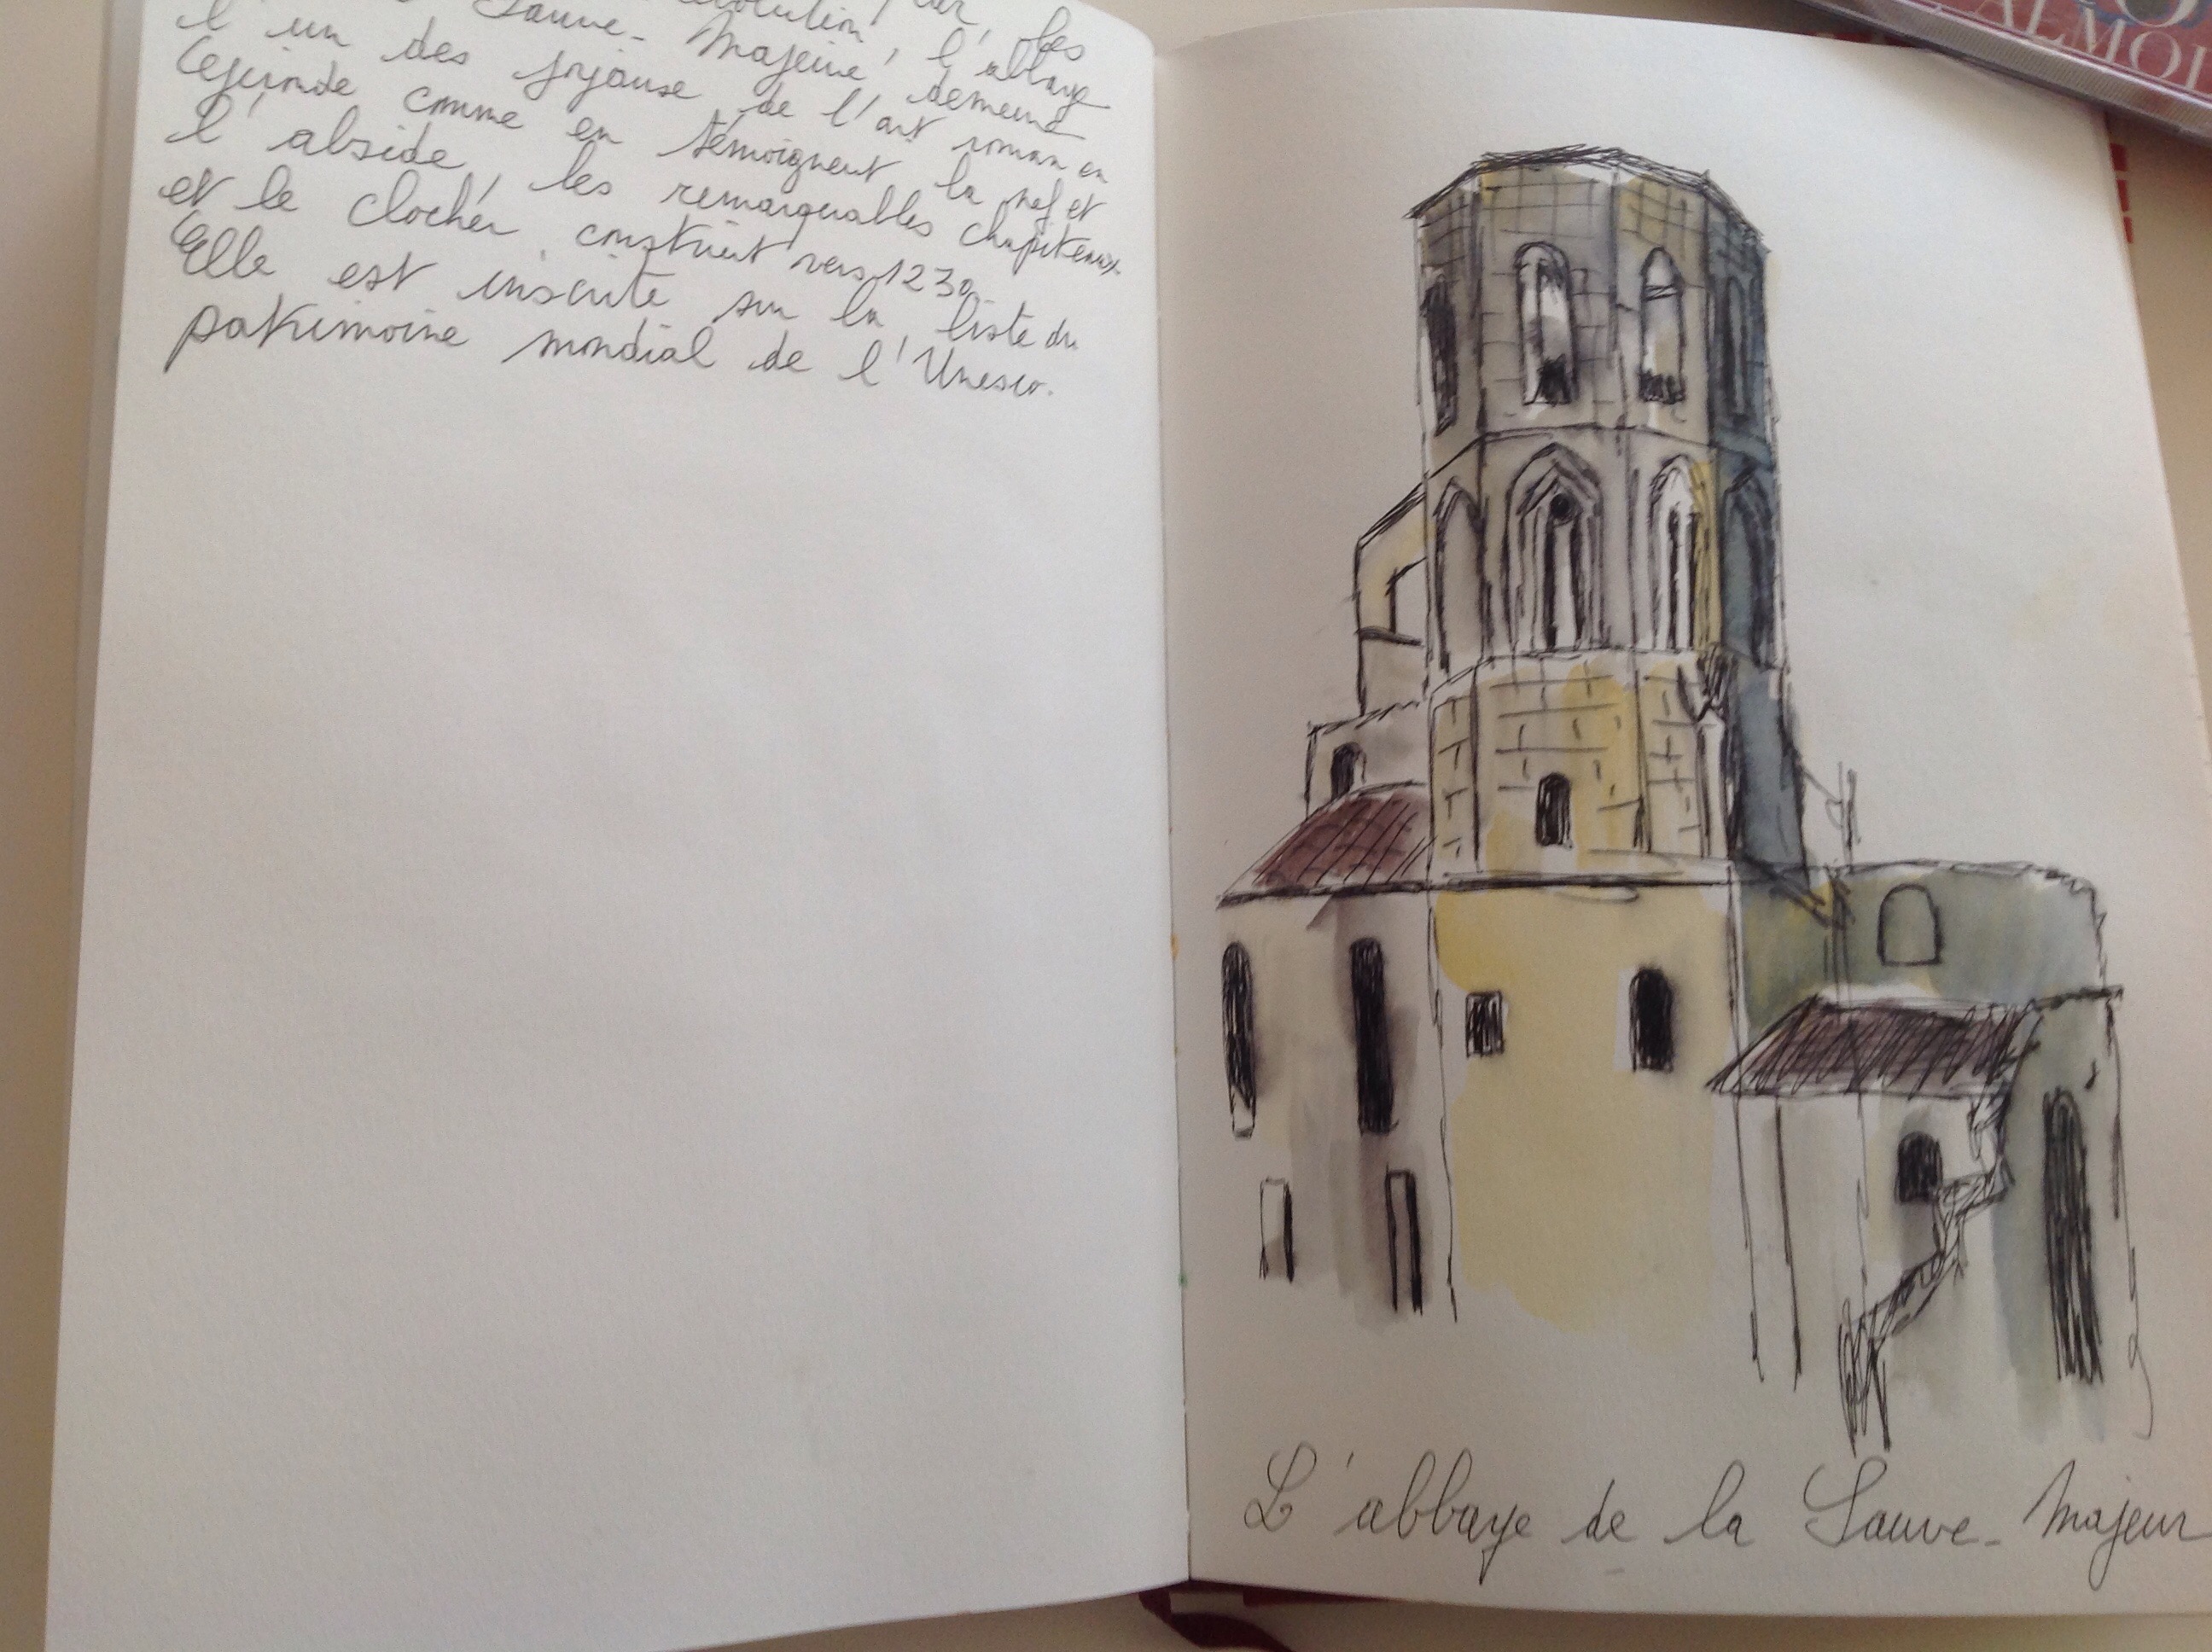 révolution, les
Sauve-Majeure, l'abbaye
l'un des joyaux de l'art roman en
Gironde comme en témoignent la nef et
l'abside, les remarquables chapiteaux
et le clocher construit vers 1230
Elle est inscrite sur la liste du
patrimoine mondial de l'Unesco.
L'abbaye de la Sauve-Majeur